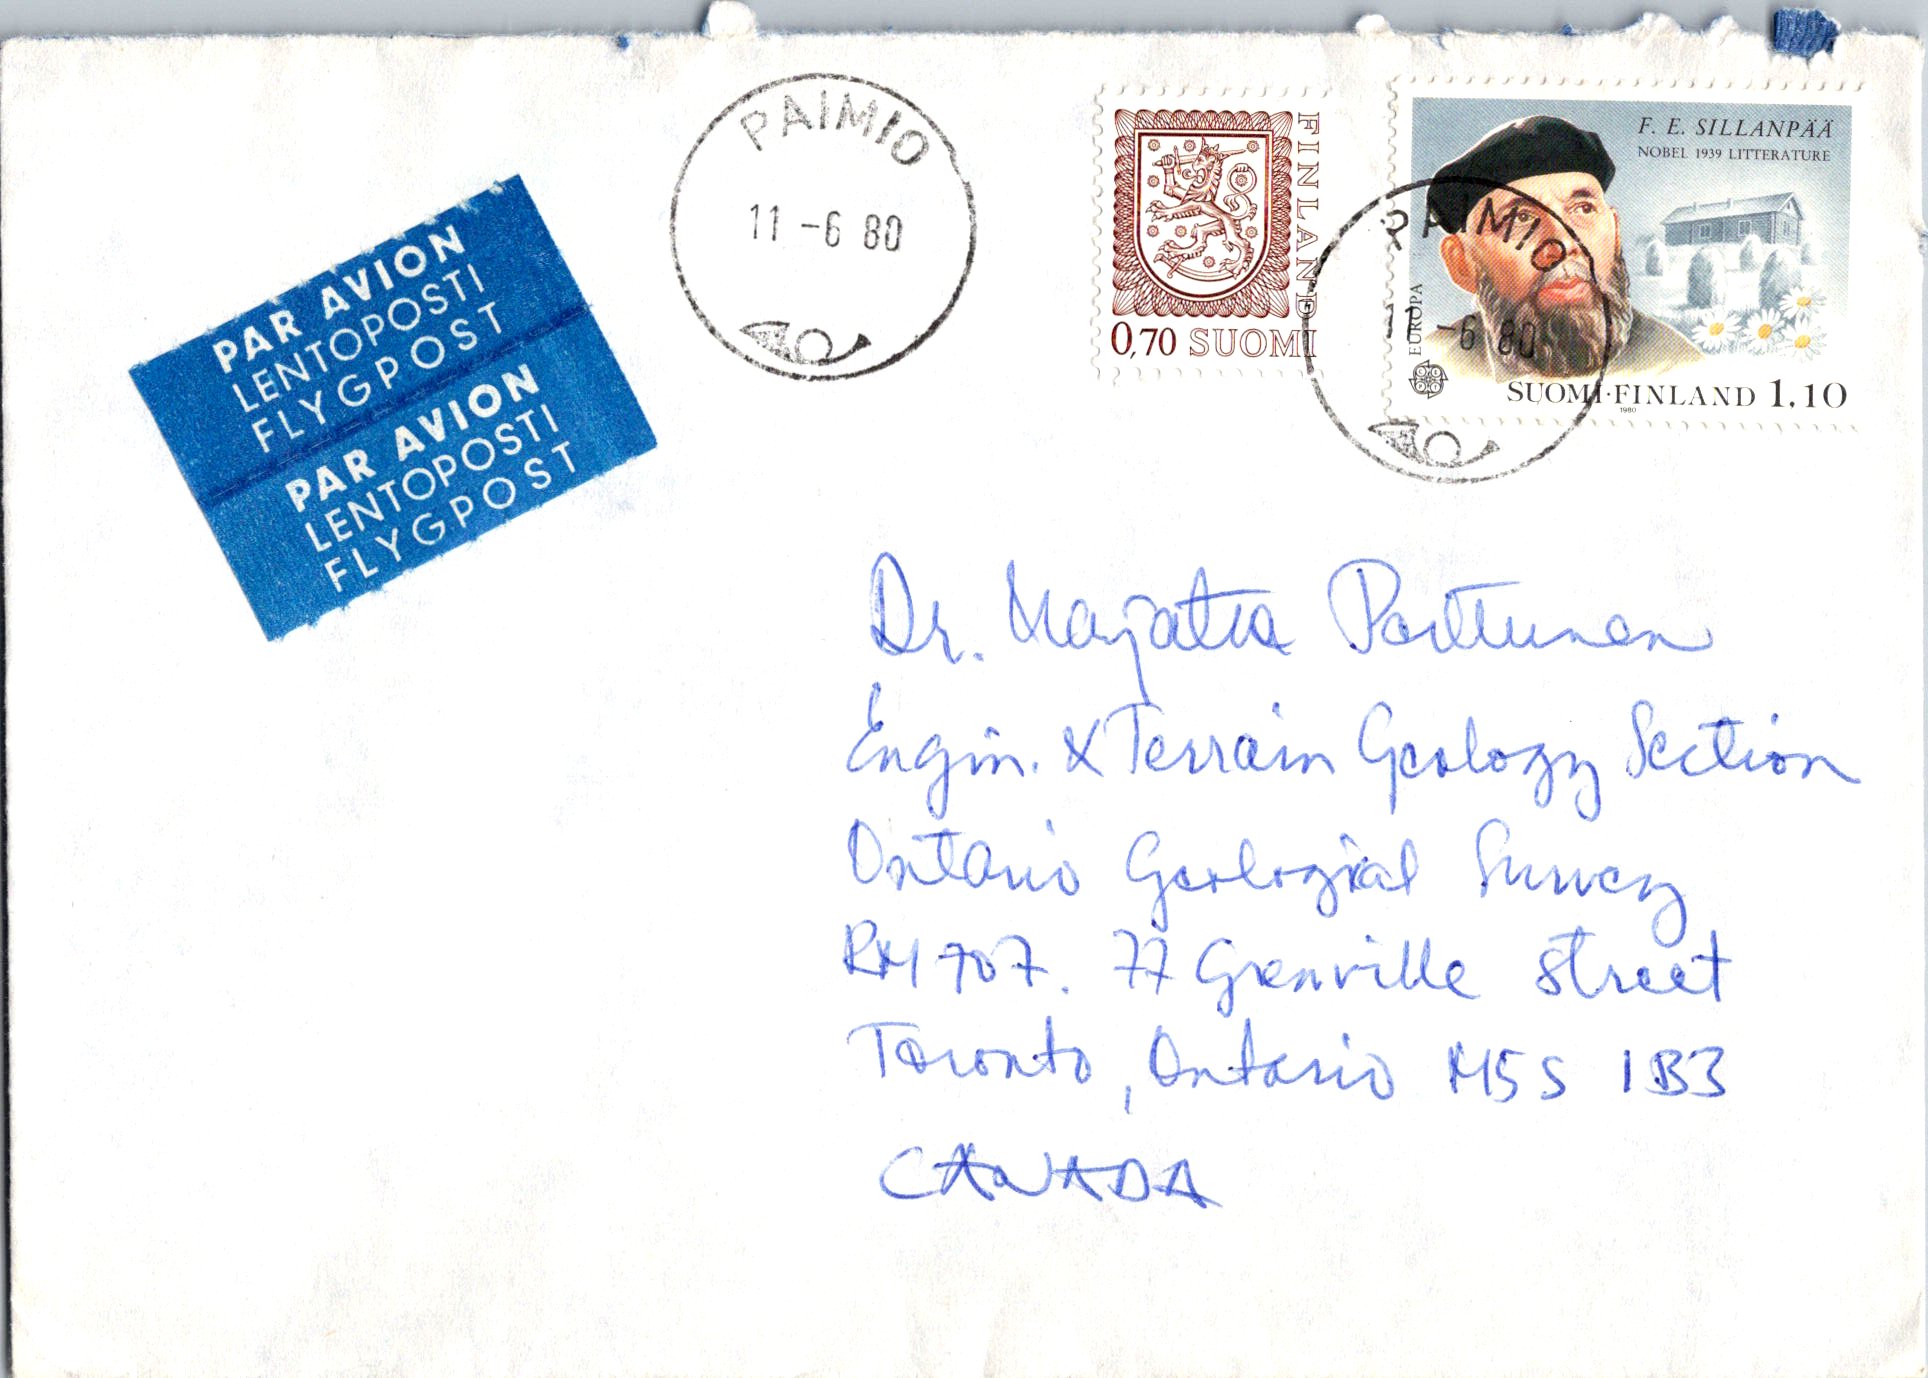 PAIMIO
11 -6 80
FINLAND
0,70 SUOMI
F. E. SILLANPÄÄ
NOBEL 1939 LITTERATURE
EUROPA
SUOMI·FINLAND 1,10
1980
PAIMIO
11 -6 80
PAR AVION
LENTOPOSTI
FLYGPOST
PAR AVION
LENTOPOSTI
FLYGPOST
Dr. Marjatta Perttunen
Engin. & Terrain Geology Section
Ontario Geological Survey
RM 707. 77 Grenville Street
Toronto, Ontario M5S 1B3
CANADA